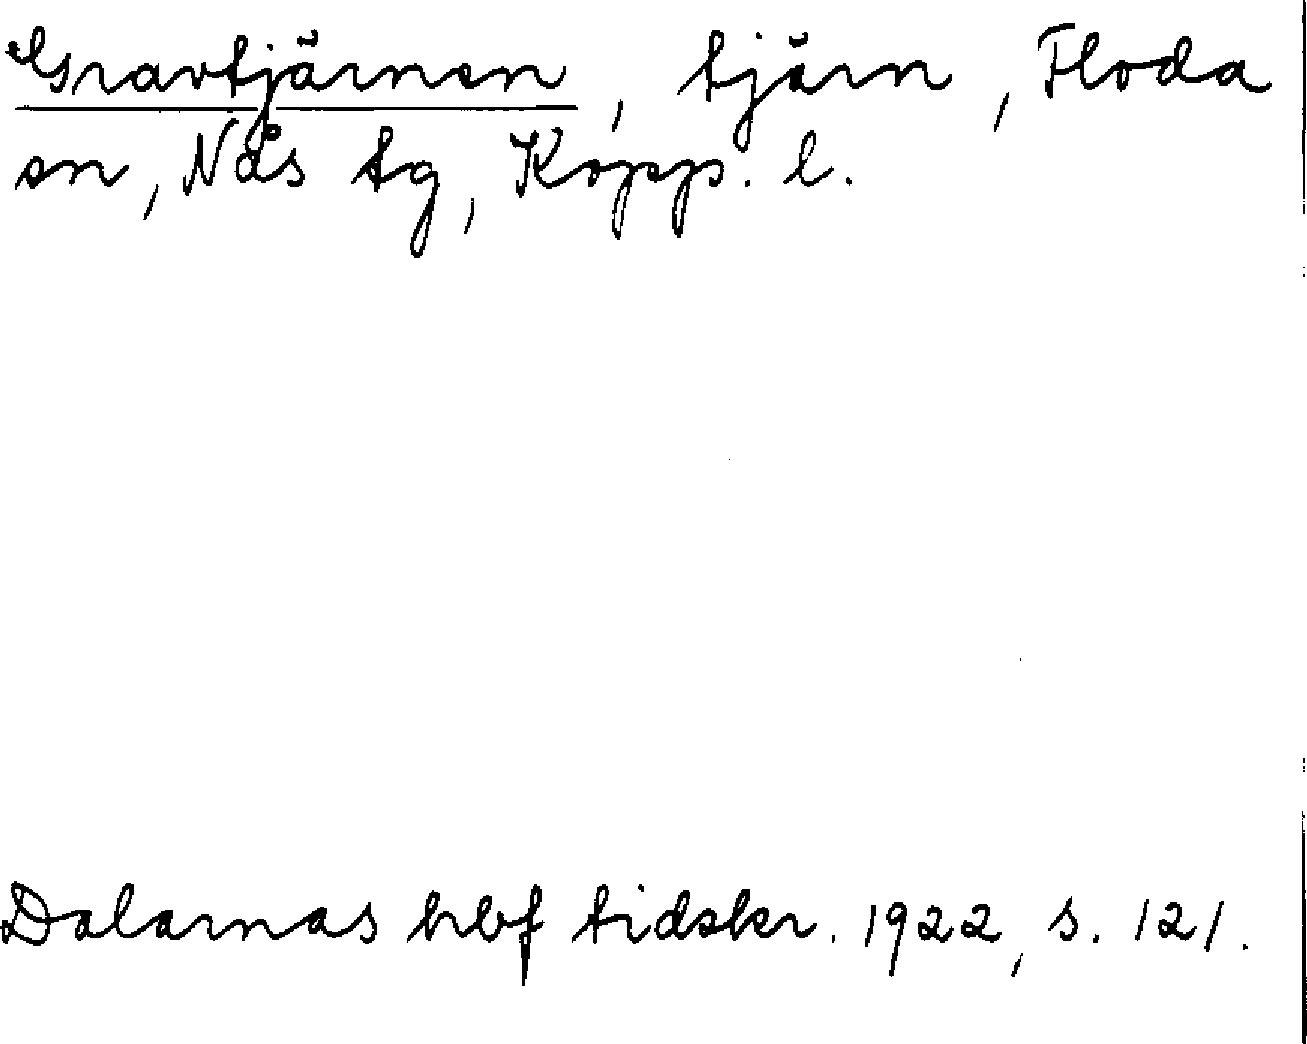 Gravtjärnen, tjärn, Floda
sn, Nås tg, Kopp. l.
Dalarnas hbf tidskr. 1922, s. 121.